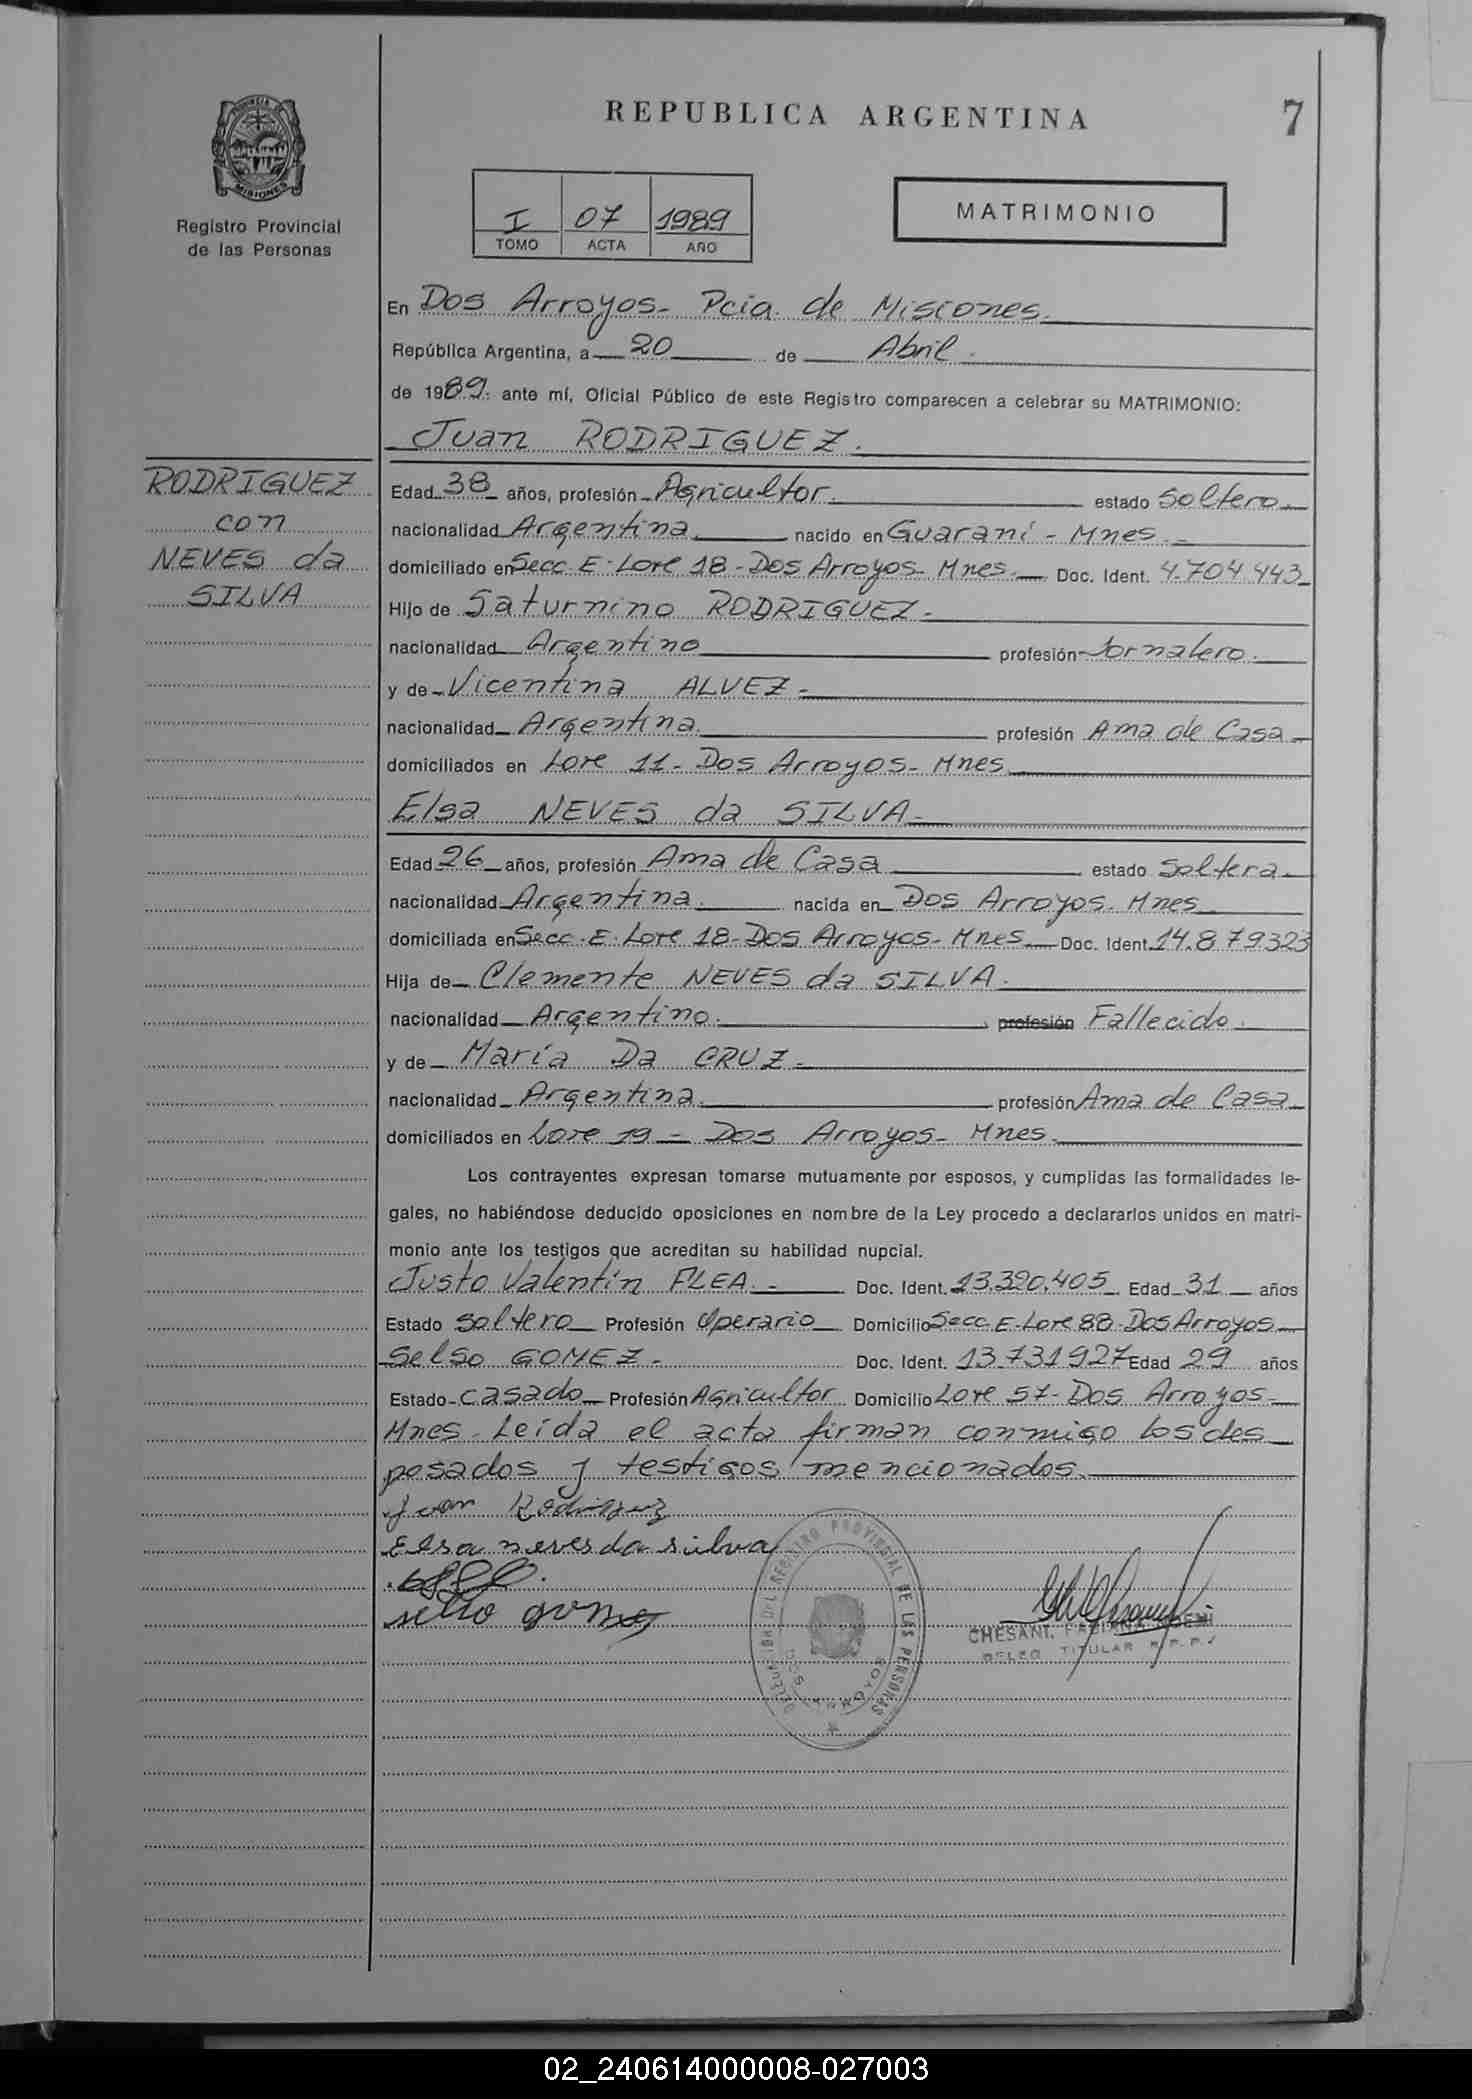 REPUBLICA ARGENTINA
7
PROVINCIA DE
MISIONES
Registro Provincial
de las Personas
I 07 1989
TOMO ACTA AÑO
MATRIMONIO
En Dos Arroyos- Pcia. de Misiones.
República Argentina, a 20 de Abril.
de 1989. ante mí, Oficial Público de este Registro comparecen a celebrar su MATRIMONIO:
Juan RODRIGUEZ.
RODRIGUEZ
con
NEVES da
SILVA
Edad 38 años, profesión Agricultor. estado Soltero.
nacionalidad Argentina nacido en Guaraní - Mnes.
domiciliado en Secc. E. Lote 18 - Dos Arroyos- Mnes. Doc. Ident. 4.704.443
Hijo de Saturnino RODRIGUEZ-
nacionalidad Argentino profesión Jornalero.
y de Vicentina ALVEZ-
nacionalidad Argentina. profesión Ama de Casa
domiciliados en Lote 11- Dos Arroyos- Mnes.
Elsa NEVES da SILVA-
Edad 26 años, profesión Ama de Casa estado Soltera
nacionalidad Argentina. nacida en Dos Arroyos. Mnes
domiciliada en Secc. E. Lote 18-Dos Arroyos- Mnes Doc. Ident. 14.879323
Hija de Clemente NEVES da SILVA.
nacionalidad Argentino. profesión Fallecido.
y de María Da CRUZ-
nacionalidad Argentina. profesión Ama de Casa
domiciliados en Lote 19 - Dos Arroyos- Mnes.
Los contrayentes expresan tomarse mutuamente por esposos, y cumplidas las formalidades le-
gales, no habiéndose deducido oposiciones en nombre de la Ley procedo a declararlos unidos en matri-
monio ante los testigos que acreditan su habilidad nupcial.
Justo Valentín FLEA.- Doc. Ident. 13.320.405 Edad 31 años
Estado Soltero Profesión Operario Domicilio Secc. E-Lote 88-Dos Arroyos
Selso GOMEZ- Doc. Ident. 13.731927 Edad 29 años
Estado Casado Profesión Agricultor Domicilio Lote 57- Dos Arroyos-
Mnes. Leída el acta firman conmigo los des
posados y testigos mencionados.
Juan Rodriguez
Elsa neves da silva
selso gomez
DELEGACION DEL REGISTRO PROVINCIAL DE LAS PERSONAS
DOS ARROYOS
CHESANI, FABIANA NOEMI
DELEG. TITULAR R.P.P.
02_240614000008-027003